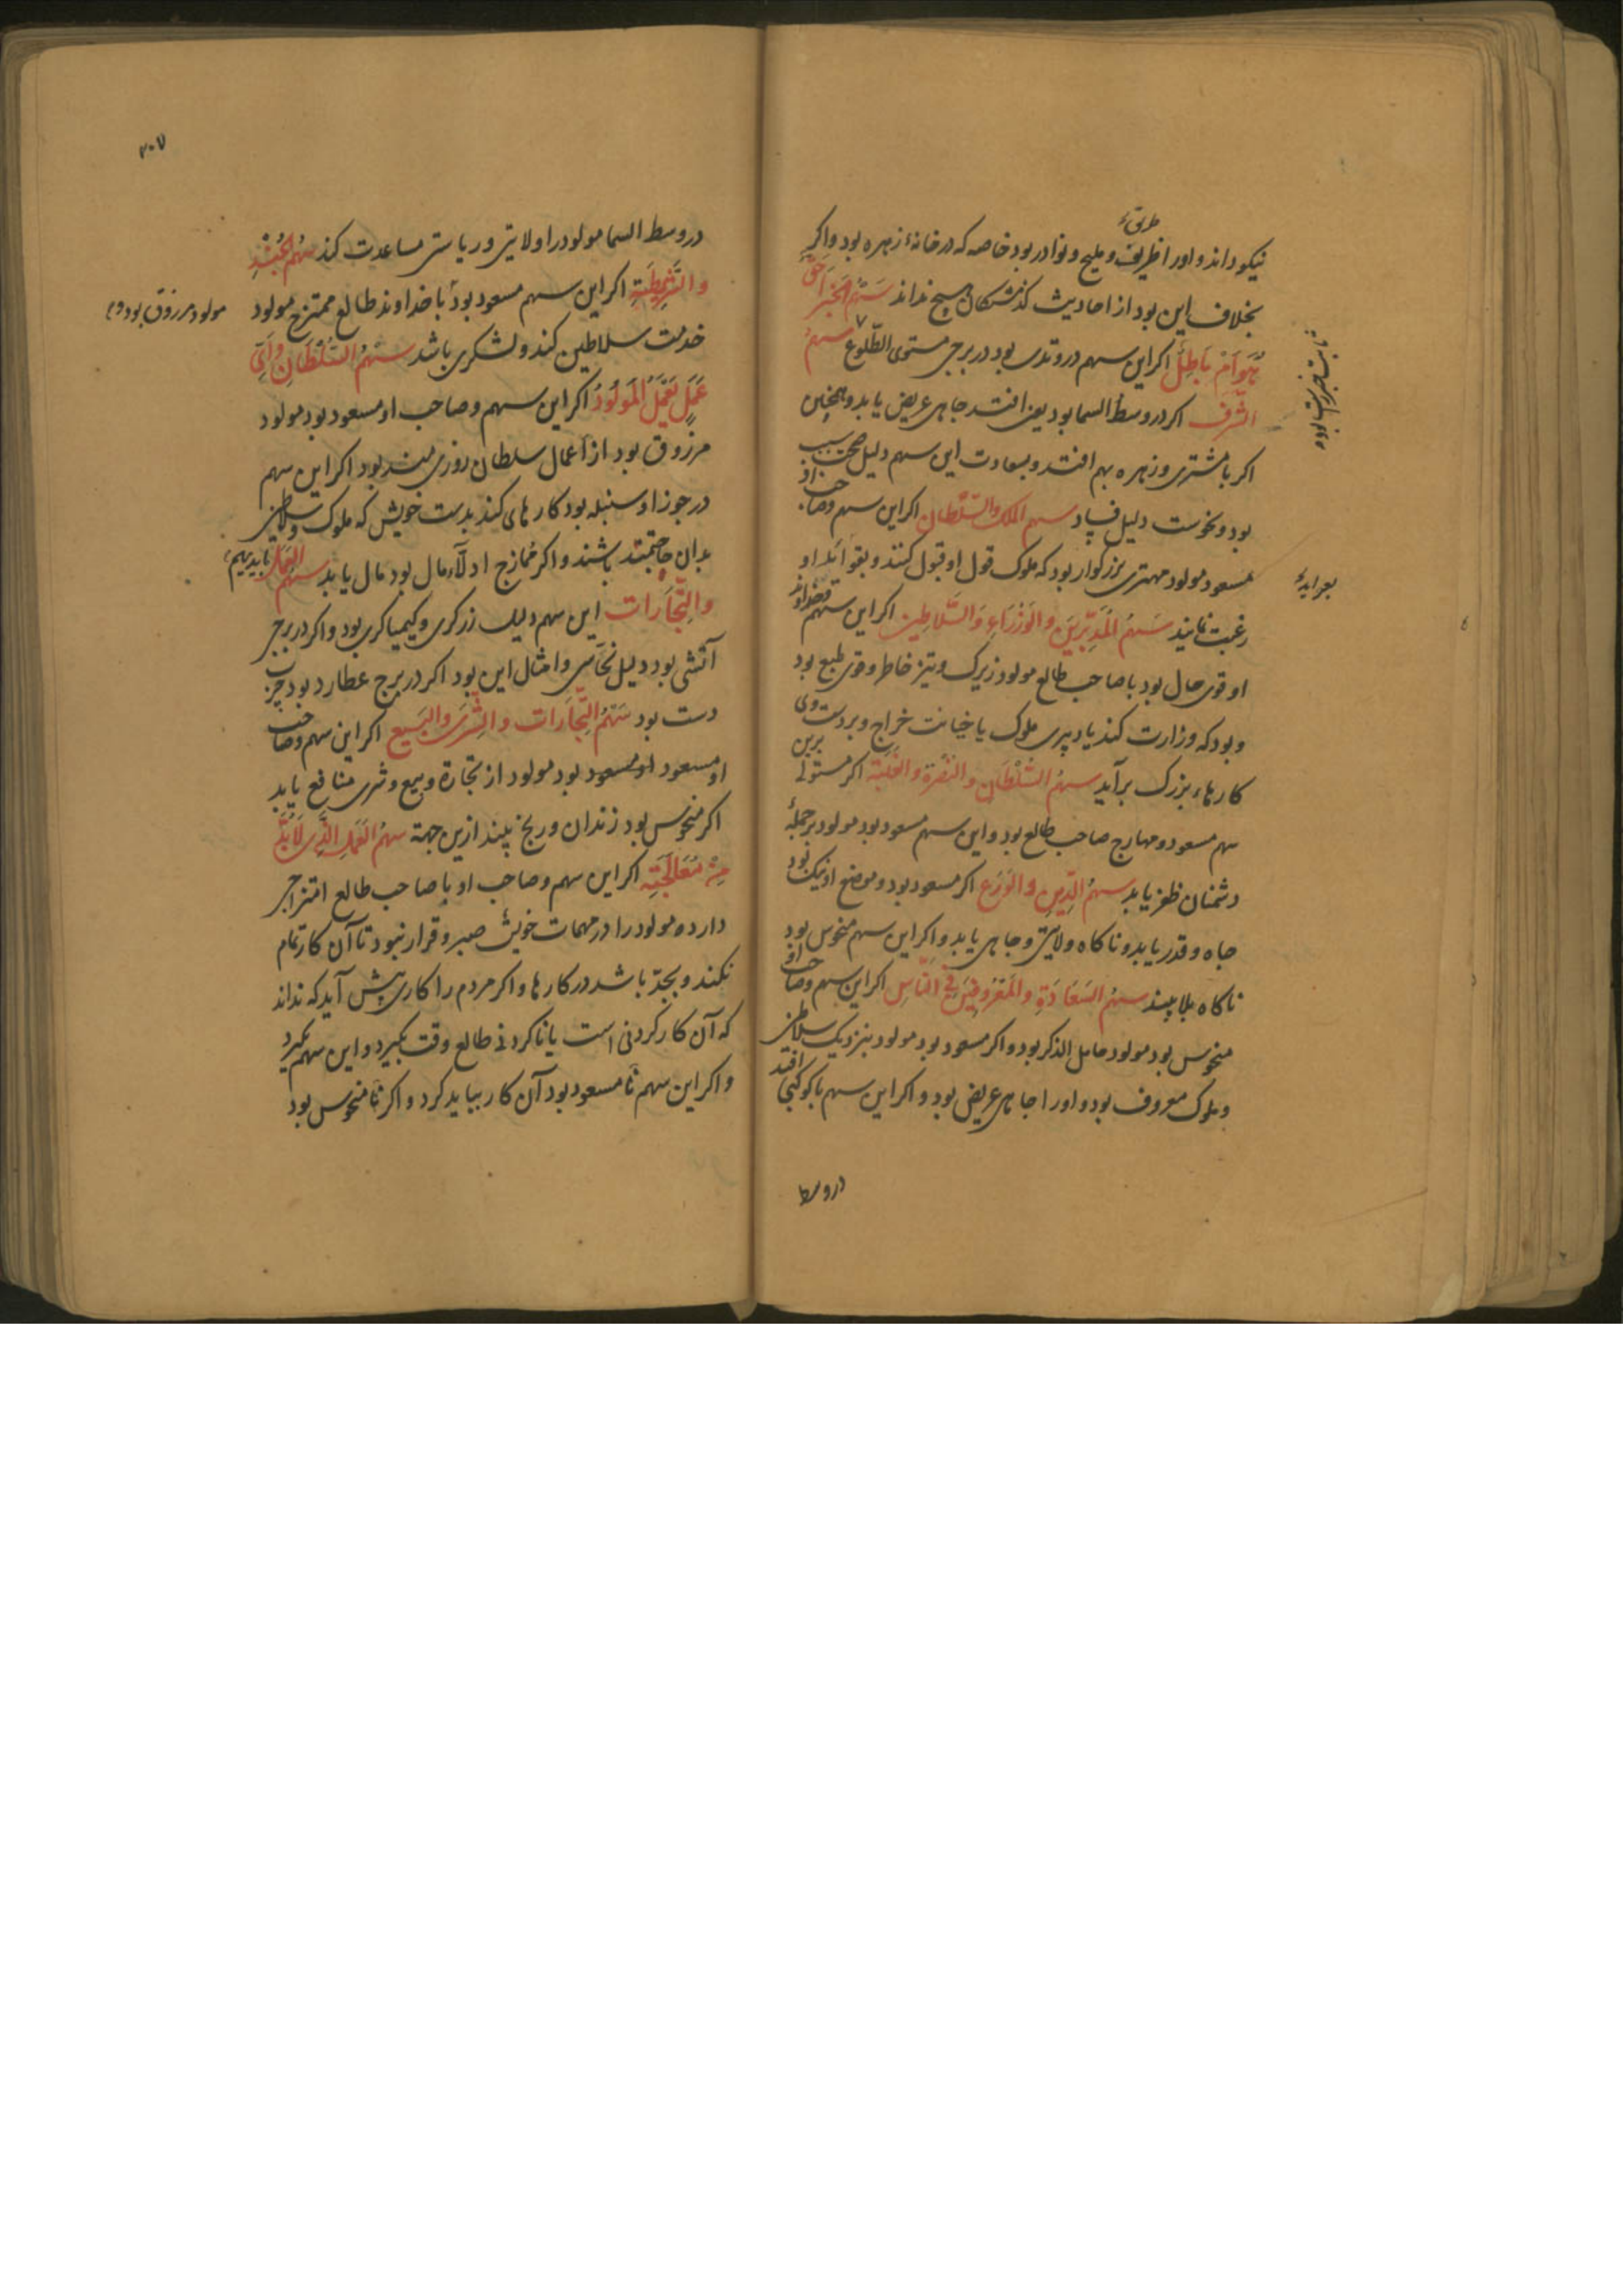 طریق
نیکو داند و اورا ظریف و ملیح و نوادر بود خاصه که در خانهٔ زهره بود و اکر
بخلاف این بود از احادیث کذشتکان هیچ نداند سَهْمُ الخَبَر اَحَقٌّ
هُوَ اَمْ بَاطِلٌ اکر این سهم در وتدی بود در برجی مستوی الطّلوع سهمُ
الشَّرَف اکر در وسط السما بود یعن افتد جاهی عریض یابد و همچنین
اکر با مشتری و زهره بهم افتد و بسعادت این سهم دلیل صحت سبب
بود و نحوست دلیل فساد سهم الملک والسّلطان اکر این سهم وصاحب او
مسعود مولود مهتری بزرکوار بود که ملوک قول او قبول کنند و بقوائد او
رغبت نمایند سَهمُ المُدَبِّرِینَ والوُزَراءِ وَالسَّلاطین اکر این سهم وخداوند
او قوی حال بود با صاحب طالع مولود زیرک و تیز خاطر و قوی طبع بود
و بود که وزارت کند یا دبیری ملوک یا خیانت خراج و بر دست وی
کارهاء بزرک برآید سهمُ السُّلْطَانِ والنُّصْرَة والغَلَبَة اکر مستولے برین
سهم مسعود و صاحب طالع بود و این سهم مسعود بود مولود بر جملهٔ
دشمنان ظفر یابد سهمُ الدِّینِ والوَرَعِ اکر مسعود بود و موضع او نیک بود
جاه و قدر یابد و ناکاه ولایتی و جاهی یابد و اکر این سهم منحوس بود
ناکاه بلا بیند سهمُ السَعَادَةِ والمَعْرُوفِینَ فِی النَّاسِ اکر این سهم وصاحب او
منحوس بود مولود خامل الذکر بود و اکر مسعود بود مولود بنزدیک سلاطین
و ملوک معروف بود و اورا جاهی عریض بود و اکر این سهم با کوکبی افتد
در وسط
۳۰۷
در وسط السما مولود را ولایتی و ریاستی مساعدت کند سهمُ الجُنْدِ
والشُّرْطَةِ اکر این سهم مسعود بود یا خداوند طالع ممتزج مولود
مولود مرزوق بود و
خدمت سلاطین کند و لشکری باشد سَهمُ السُّلْطَانِ واَیِّ
عَمَلٍ یَعْمَلُ المَولُودُ اکر این سهم و صاحب او مسعود بود مولود
مرزوق بود از اعمال سلطان روزی مند بود اکر این سهم
در جوزا و سنبله بود کارهای کند بدست خویش که ملوک و سلاطین
بدان حاجتمند باشند و اکر ممازج ادلّاء مال بود مال یابد سهمُ العَمَلِ
والتِّجَارَات این سهم دلیل زرکری و کیمیاکری بود و اکر در برجی
آتشی بود دلیل نحّاسی و امثال این بود اکر در برج عطارد بود چرب
دست بود سَهْمُ التِّجَارَات والشِّرَی والبَیع اکر این سهم و صاحب
او مسعود او مسعود بود مولود از تجارة و بیع و شری منافع یابد
اکر منحوس بود زندان و رنج بیند ازین جهة سهمُ العَمَلِ الَّذِی لَا بُدَّ
مِنْ مُعَالَجَتِهِ اکر این سهم و صاحب او با صاحب طالع امتزاجی
دارد مولود را در مهمات خویش صبر و قرار نبود تا آن کار تمام
نکند و بجدّ باشد در کارها و اکر مردم را کاری پیش آید که نداند
که آن کار کردنی است یا نا کردنی طالع وقت بکیرد و این سهم بکیرد
و اکر این سهم تا مسعود بود آن کار بباید کرد و اکر تا منحوس بود